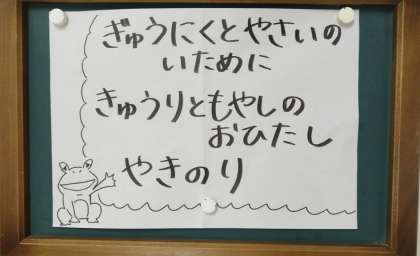 ぎゅうにくとやさいの
いために
きゅうりともやしの
おひたし
やきのり